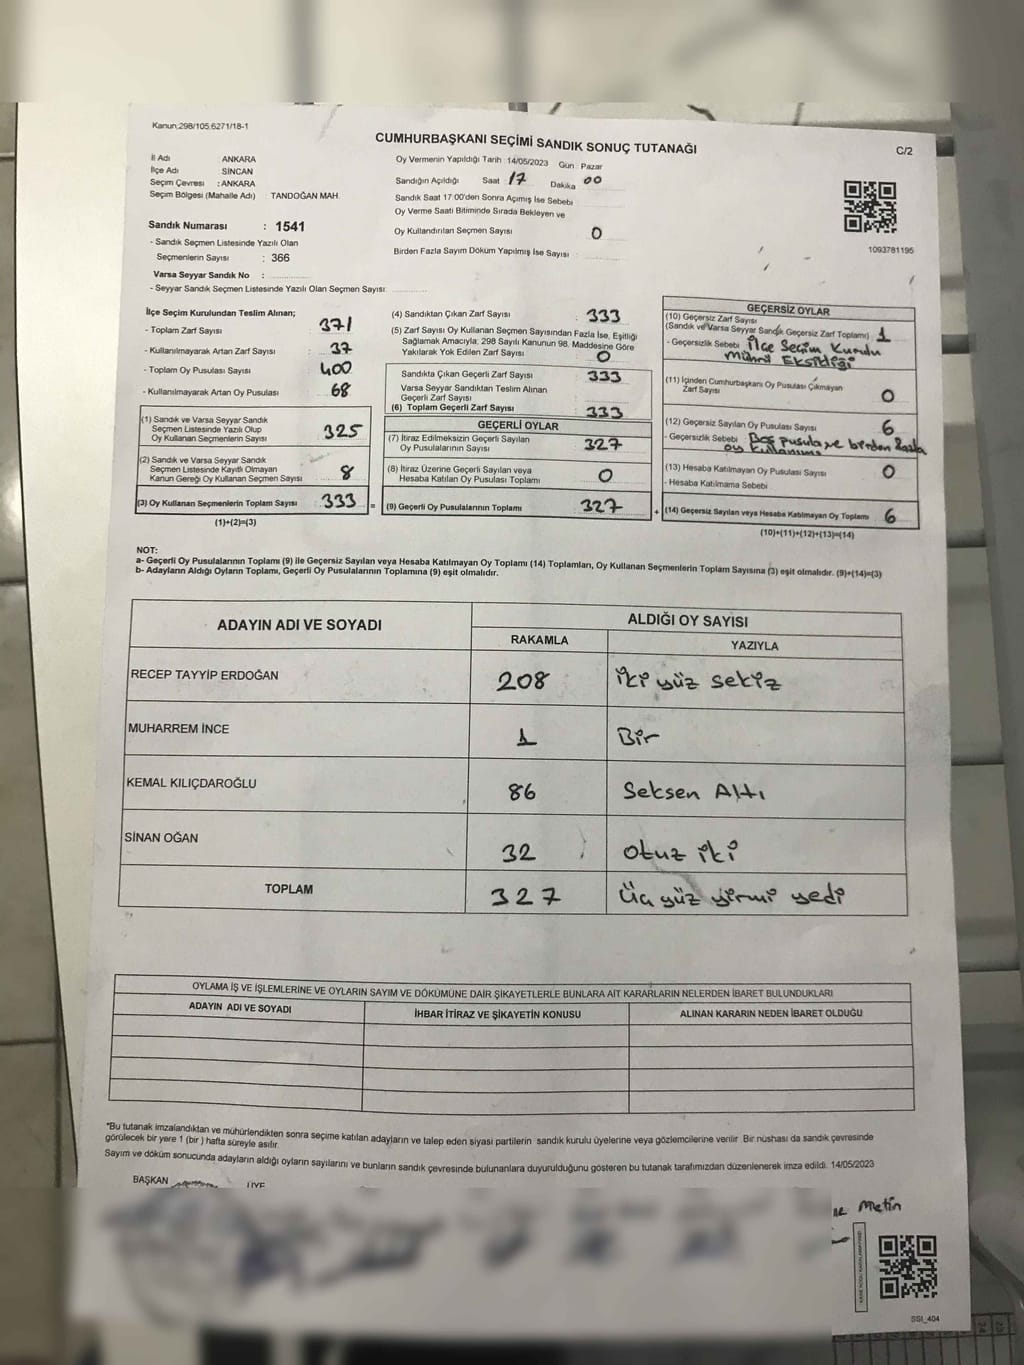 Kanun;298/105;6271/18-1
CUMHURBAŞKANI SEÇİMİ SANDIK SONUÇ TUTANAĞI
C/2
İl Adı ANKARA
İlçe Adı SİNCAN
Seçim Çevresi : ANKARA
Seçim Bölgesi (Mahalle Adı) : TANDOĞAN MAH.
Sandık Numarası : 1541
- Sandık Seçmen Listesinde Yazılı Olan
Seçmenlerin Sayısı : 366
Varsa Seyyar Sandık No :
- Seyyar Sandık Seçmen Listesinde Yazılı Olan Seçmen Sayısı:
Oy Vermenin Yapıldığı Tarih : 14/05/2023 Gün : Pazar
Sandığın Açıldığı Saat 17 Dakika 00
Sandık Saat 17:00'den Sonra Açımış İse Sebebi
Oy Verme Saati Bitiminde Sırada Bekleyen ve
Oy Kullandırılan Seçmen Sayısı : 0
Birden Fazla Sayım Döküm Yapılmış İse Sayısı :
1093781195
İlçe Seçim Kurulundan Teslim Alınan;
- Toplam Zarf Sayısı : 371
- Kullanılmayarak Artan Zarf Sayısı : 37
- Toplam Oy Pusulası Sayısı : 400
- Kullanılmayarak Artan Oy Pusulası : 68
(1) Sandık ve Varsa Seyyar Sandık
Seçmen Listesinde Yazılı Olup
Oy Kullanan Seçmenlerin Sayısı : 325
(2) Sandık ve Varsa Seyyar Sandık
Seçmen Listesinde Kayıtlı Olmayan
Kanun Gereği Oy Kullanan Seçmen Sayısı : 8
(3) Oy Kullanan Seçmenlerin Toplam Sayısı : 333 =
(1)+(2)=(3)
(4) Sandıktan Çıkan Zarf Sayısı : 333
(5) Zarf Sayısı Oy Kullanan Seçmen Sayısından Fazla İse, Eşitliği
Sağlamak Amacıyla, 298 Sayılı Kanunun 98. Maddesine Göre
Yakılarak Yok Edilen Zarf Sayısı : 0
Sandıkta Çıkan Geçerli Zarf Sayısı : 333
Varsa Seyyar Sandıktan Teslim Alınan
Geçerli Zarf Sayısı :
(6) Toplam Geçerli Zarf Sayısı : 333
GEÇERLİ OYLAR
(7) İtiraz Edilmeksizin Geçerli Sayılan
Oy Pusulalarının Sayısı : 327
(8) İtiraz Üzerine Geçerli Sayılan veya
Hesaba Katılan Oy Pusulası Toplamı : 0
(9) Geçerli Oy Pusulalarının Toplamı : 327 +
GEÇERSİZ OYLAR
(10) Geçersiz Zarf Sayısı
(Sandık ve Varsa Seyyar Sandık Geçersiz Zarf Toplamı) : 1
- Geçersizlik Sebebi : İlçe Seçim Kurulu
Mührü Eksikliği
(11) İçinden Cumhurbaşkanı Oy Pusulası Çıkmayan
Zarf Sayısı : 0
(12) Geçersiz Sayılan Oy Pusulası Sayısı : 6
- Geçersizlik Sebebi : Boş pusula ve birden fazla
oy kullanımı
(13) Hesaba Katılmayan Oy Pusulası Sayısı : 0
- Hesaba Katılmama Sebebi
(14) Geçersiz Sayılan veya Hesaba Katılmayan Oy Toplamı : 6
(10)+(11)+(12)+(13)=(14)
NOT:
a- Geçerli Oy Pusulalarının Toplamı (9) ile Geçersiz Sayılan veya Hesaba Katılmayan Oy Toplamı (14) Toplamları, Oy Kullanan Seçmenlerin Toplam Sayısına (3) eşit olmalıdır. (9)+(14)=(3)
b- Adayların Aldığı Oyların Toplamı, Geçerli Oy Pusulalarının Toplamına (9) eşit olmalıdır.
ADAYIN ADI VE SOYADI ALDIĞI OY SAYISI
RAKAMLA YAZIYLA
RECEP TAYYİP ERDOĞAN 208 iki yüz sekiz
MUHARREM İNCE 1 Bir
KEMAL KILIÇDAROĞLU 86 Seksen Altı
SİNAN OĞAN 32 otuz iki
TOPLAM 327 Üç yüz yirmi yedi
OYLAMA İŞ VE İŞLEMLERİNE VE OYLARIN SAYIM VE DÖKÜMÜNE DAİR ŞİKAYETLERLE BUNLARA AİT KARARLARIN NELERDEN İBARET BULUNDUKLARI
ADAYIN ADI VE SOYADI İHBAR İTİRAZ VE ŞİKAYETİN KONUSU ALINAN KARARIN NEDEN İBARET OLDUĞU
*Bu tutanak imzalandıktan ve mühürlendikten sonra seçime katılan adayların ve talep eden siyasi partilerin sandık kurulu üyelerine veya gözlemcilerine verilir. Bir nüshası da sandık çevresinde
görülecek bir yere 1 (bir ) hafta süreyle asılır.
Sayım ve döküm sonucunda adayların aldığı oyların sayılarını ve bunların sandık çevresinde bulunanlara duyurulduğunu gösteren bu tutanak tarafımızdan düzenlenerek imza edildi. 14/05/2023
BAŞKAN ÜYE
Metin
SSI_404